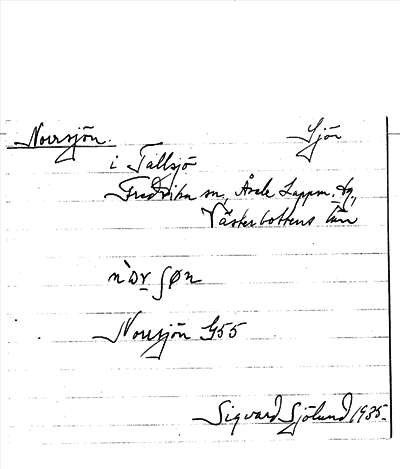 Norrsjön. Sjön
i Tallsjö
Fredrika sn, Åsele Lappm. tg,
Västerbottens län
n`ɔr ʃøn
Norrsjön G55
Sigvard Sjölund 1935.